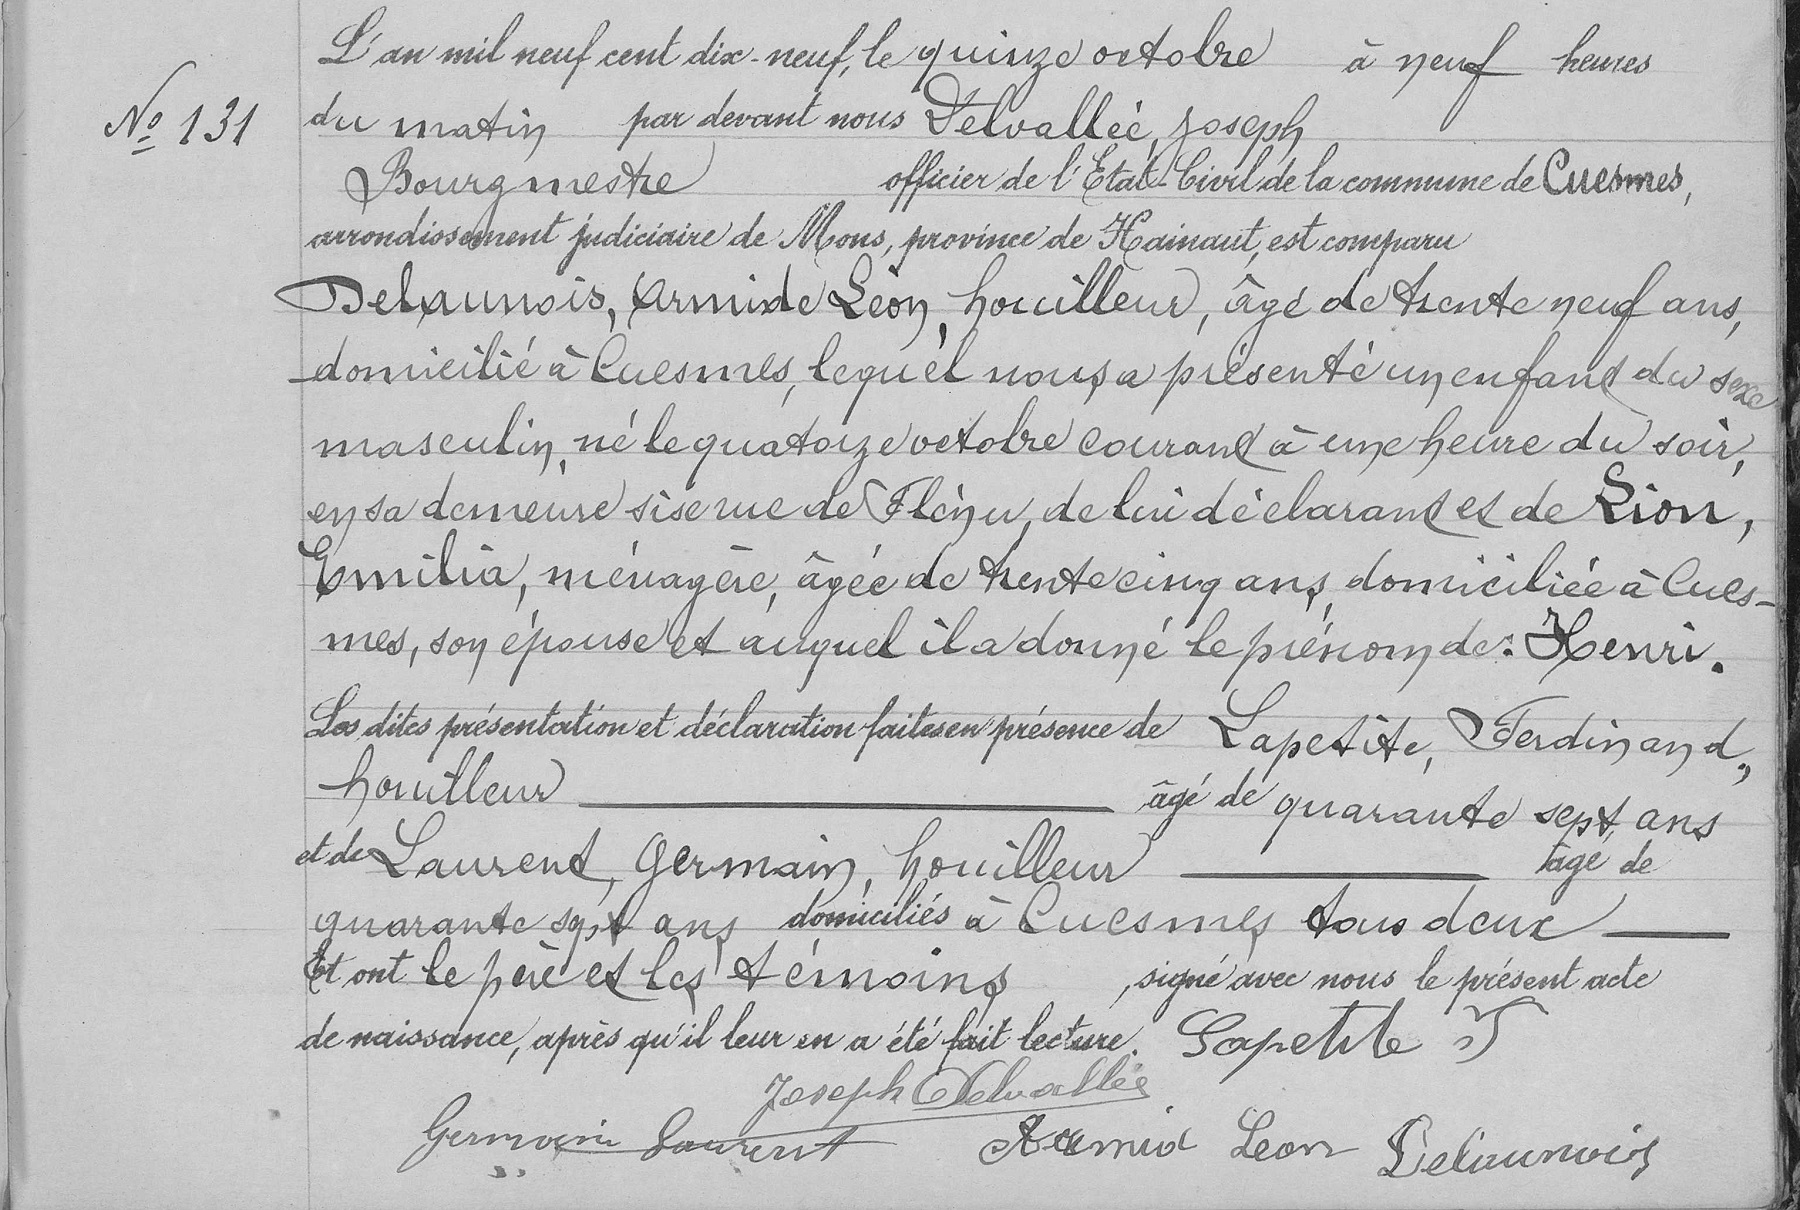 L'an mil neuf cent dix-neuf, le quinze octobre à neuf heures
Nº 131
du matin par devant nous Delvallée, Joseph
Bourgmestre officier de l'Etat-Civil de la commune de Cuesmes,
arrondissement judiciaire de Mons, province de Hainaut, est comparu
Delaunois, Armide Léon, houilleur, âgé de trente neuf ans,
domicilié à Cuesmes, lequel nous a présenté un enfant du sexe
masculin, né le quatorze octobre courant à une heure du soir,
en sa demeure sise rue de Flénu, de lui déclarant et de Lion,
Emilia, ménagère, âgée de trente cinq ans, domiciliée à Cues-
mes, son épouse et auquel il a donné le prénom de: Henri.
Les dites présentation et déclaration faites en présence de Lapetite, Ferdinand,
houilleur âgé de quarante sept ans
et de Laurent, Germain, houilleur âgé de
quarante sept ans domiciliés à Cuesmes tous deux
Et ont le père et les témoins, signé avec nous le présent acte
de naissance, après qu'il leur en a été fait lecture. Lapetite F
Joseph Delvallée
Germain Laurent Armid Leon Delaunois